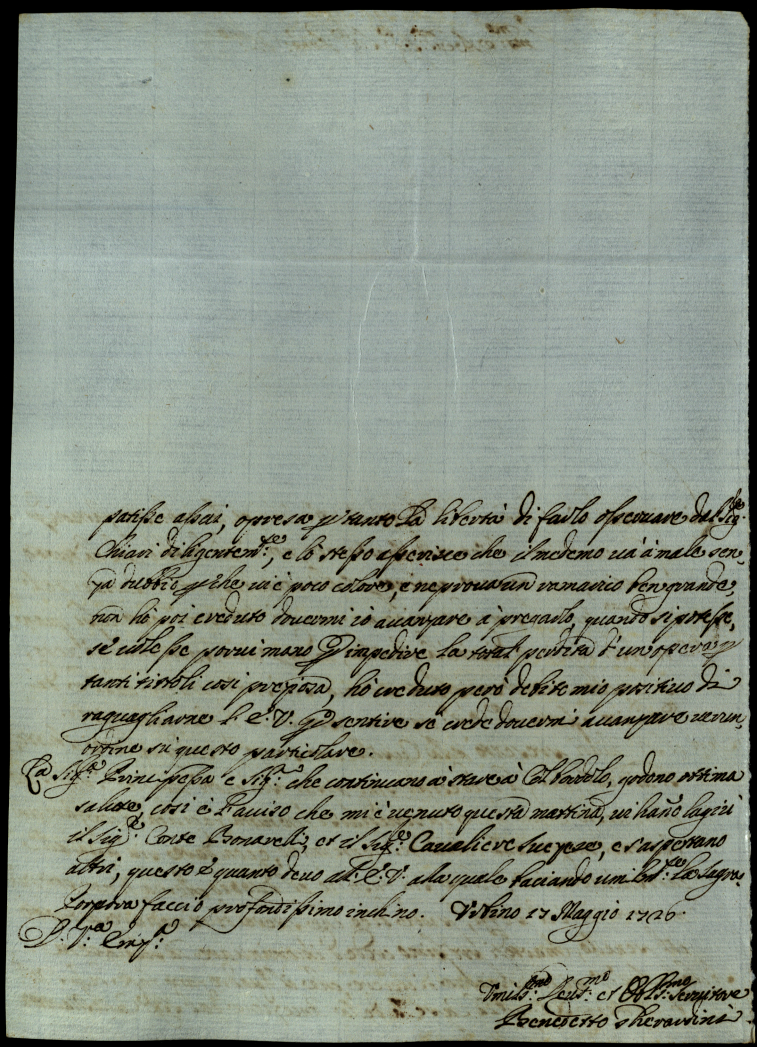 patisse assai, o presa p tanto la libertà di farlo osservare dal Sig.re
Chiari diligentem.te, e lo stesso asserisce che il medemo và à male sen-
za dubbio p che vi è poco colore, e ne prova un ramarico ben grande,
non hò poi creduto dovermi io avanzare à pregarlo, quando si potesse,
se volesse porvi mano p impedire la total perdita d'un opera p
tanti tittoli così preziosa, hò creduto però debito mio positivo di
raguagliarne L'E. V. p sentire se crede dovermi avanzare verun
ordine sù questo particolare.
La Sig.ra Principessa e Sig.ri che continuano à stare à Colbordolo, godono ottima
salute, così è l'aviso che mi è venuto questa mattina, vi hanno lagiù
il Sig.r Conte Bonarelli, et il Sig.re Cavaliere , e s'aspettano
altri, questo è quanto devo all'E. V. alla quale baciando umilm.te la Sagra
Porpora faccio profondissimo inchino. Urbino 17 Maggio 1726
D. V.ra Em.za
Umiliss.mo Devot.mo et Obblig.mo Servitore
Benedetto